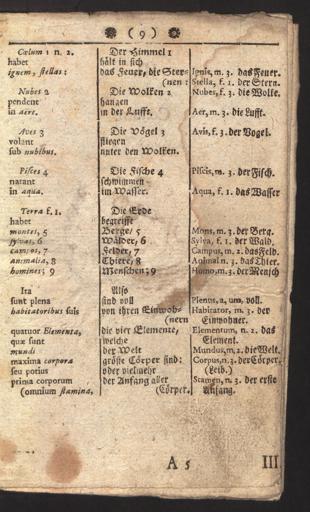 (9)
Cœlum 1 n. 2.
habet
ignem, stellas:
Nubes 2
pendent
in aëre.
Aves 3
volant
sub nubibus.
Pisces 4
natant
in aqua.
Terra f. 1.
habet
montes, 5
sylvas, 6
campos, 7
animalia, 8
homines; 9
Ita
sunt plena
habitatoribus suis
quatuor Elementa,
quæ sunt
mundi
maxima corpora
seu potius
prima corporum
(omnium stamina,
Der Himmel 1
hält in sich
das Feuer, die Ster-
(nen:
Die Wolken 2
hangen
in der Lufft.
Die Vögel 3
fliegen
unter den Wolken.
Die Fische 4
schwimmen
im Wasser.
Die Erde
begreifft
Berge, 5
Wälder, 6
Felder, 7
Thiere, 8
Menschen; 9
Also
sind voll
von ihren Einwoh-
(nern
die vier Elemente,
welche
der Welt
gröste Cörper sind:
oder vielmehr
der Anfang aller
(Cörper.
Ignis, m. 3. das Feuer.
Stella, f. 1. der Stern.
Nubes, f. 3. die Wolke.
Aer, m. 3. die Lufft.
Avis, f. 3. der Vogel.
Piscis, m. 3. der Fisch.
Aqua, f. 1. das Wasser
Mons, m. 3. der Berg.
Sylva, f. 1. der Wald.
Campus, m. 2. das Feld.
Animal n. 3. das Thier.
Homo, m. 3. der Mensch
Plenus, a, um, voll.
Habitator, m. 3. der
Einwohner.
Elementum, n. 2. das
Element.
Mundus, m, 2. die Welt.
Corpus, n. 3. der Cörper.
(Leib.)
Stamen, n. 3. der erste
Anfang.
A 5
III.